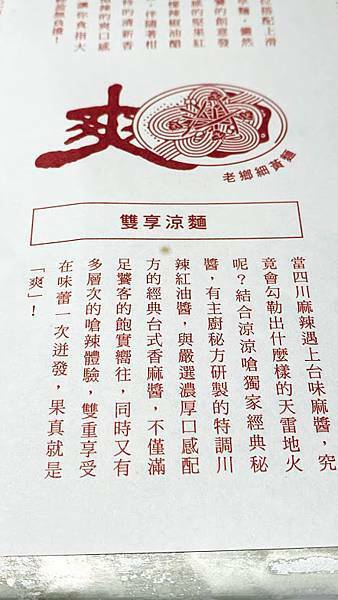 爽
老鄉細黃麵
雙享涼麵
當四川麻辣遇上台味麻醬，究
竟會勾勒出什麼樣的天雷地火
呢？結合涼涼嗆獨家經典秘
醬，有主廚秘方研製的特調川
辣紅油醬，與嚴選濃厚口感配
方的經典台式香麻醬，不僅滿
足饕客的飽實嚮往，同時又有
多層次的嗆辣體驗，雙重享受
在味蕾一次迸發，果真就是
「爽」！